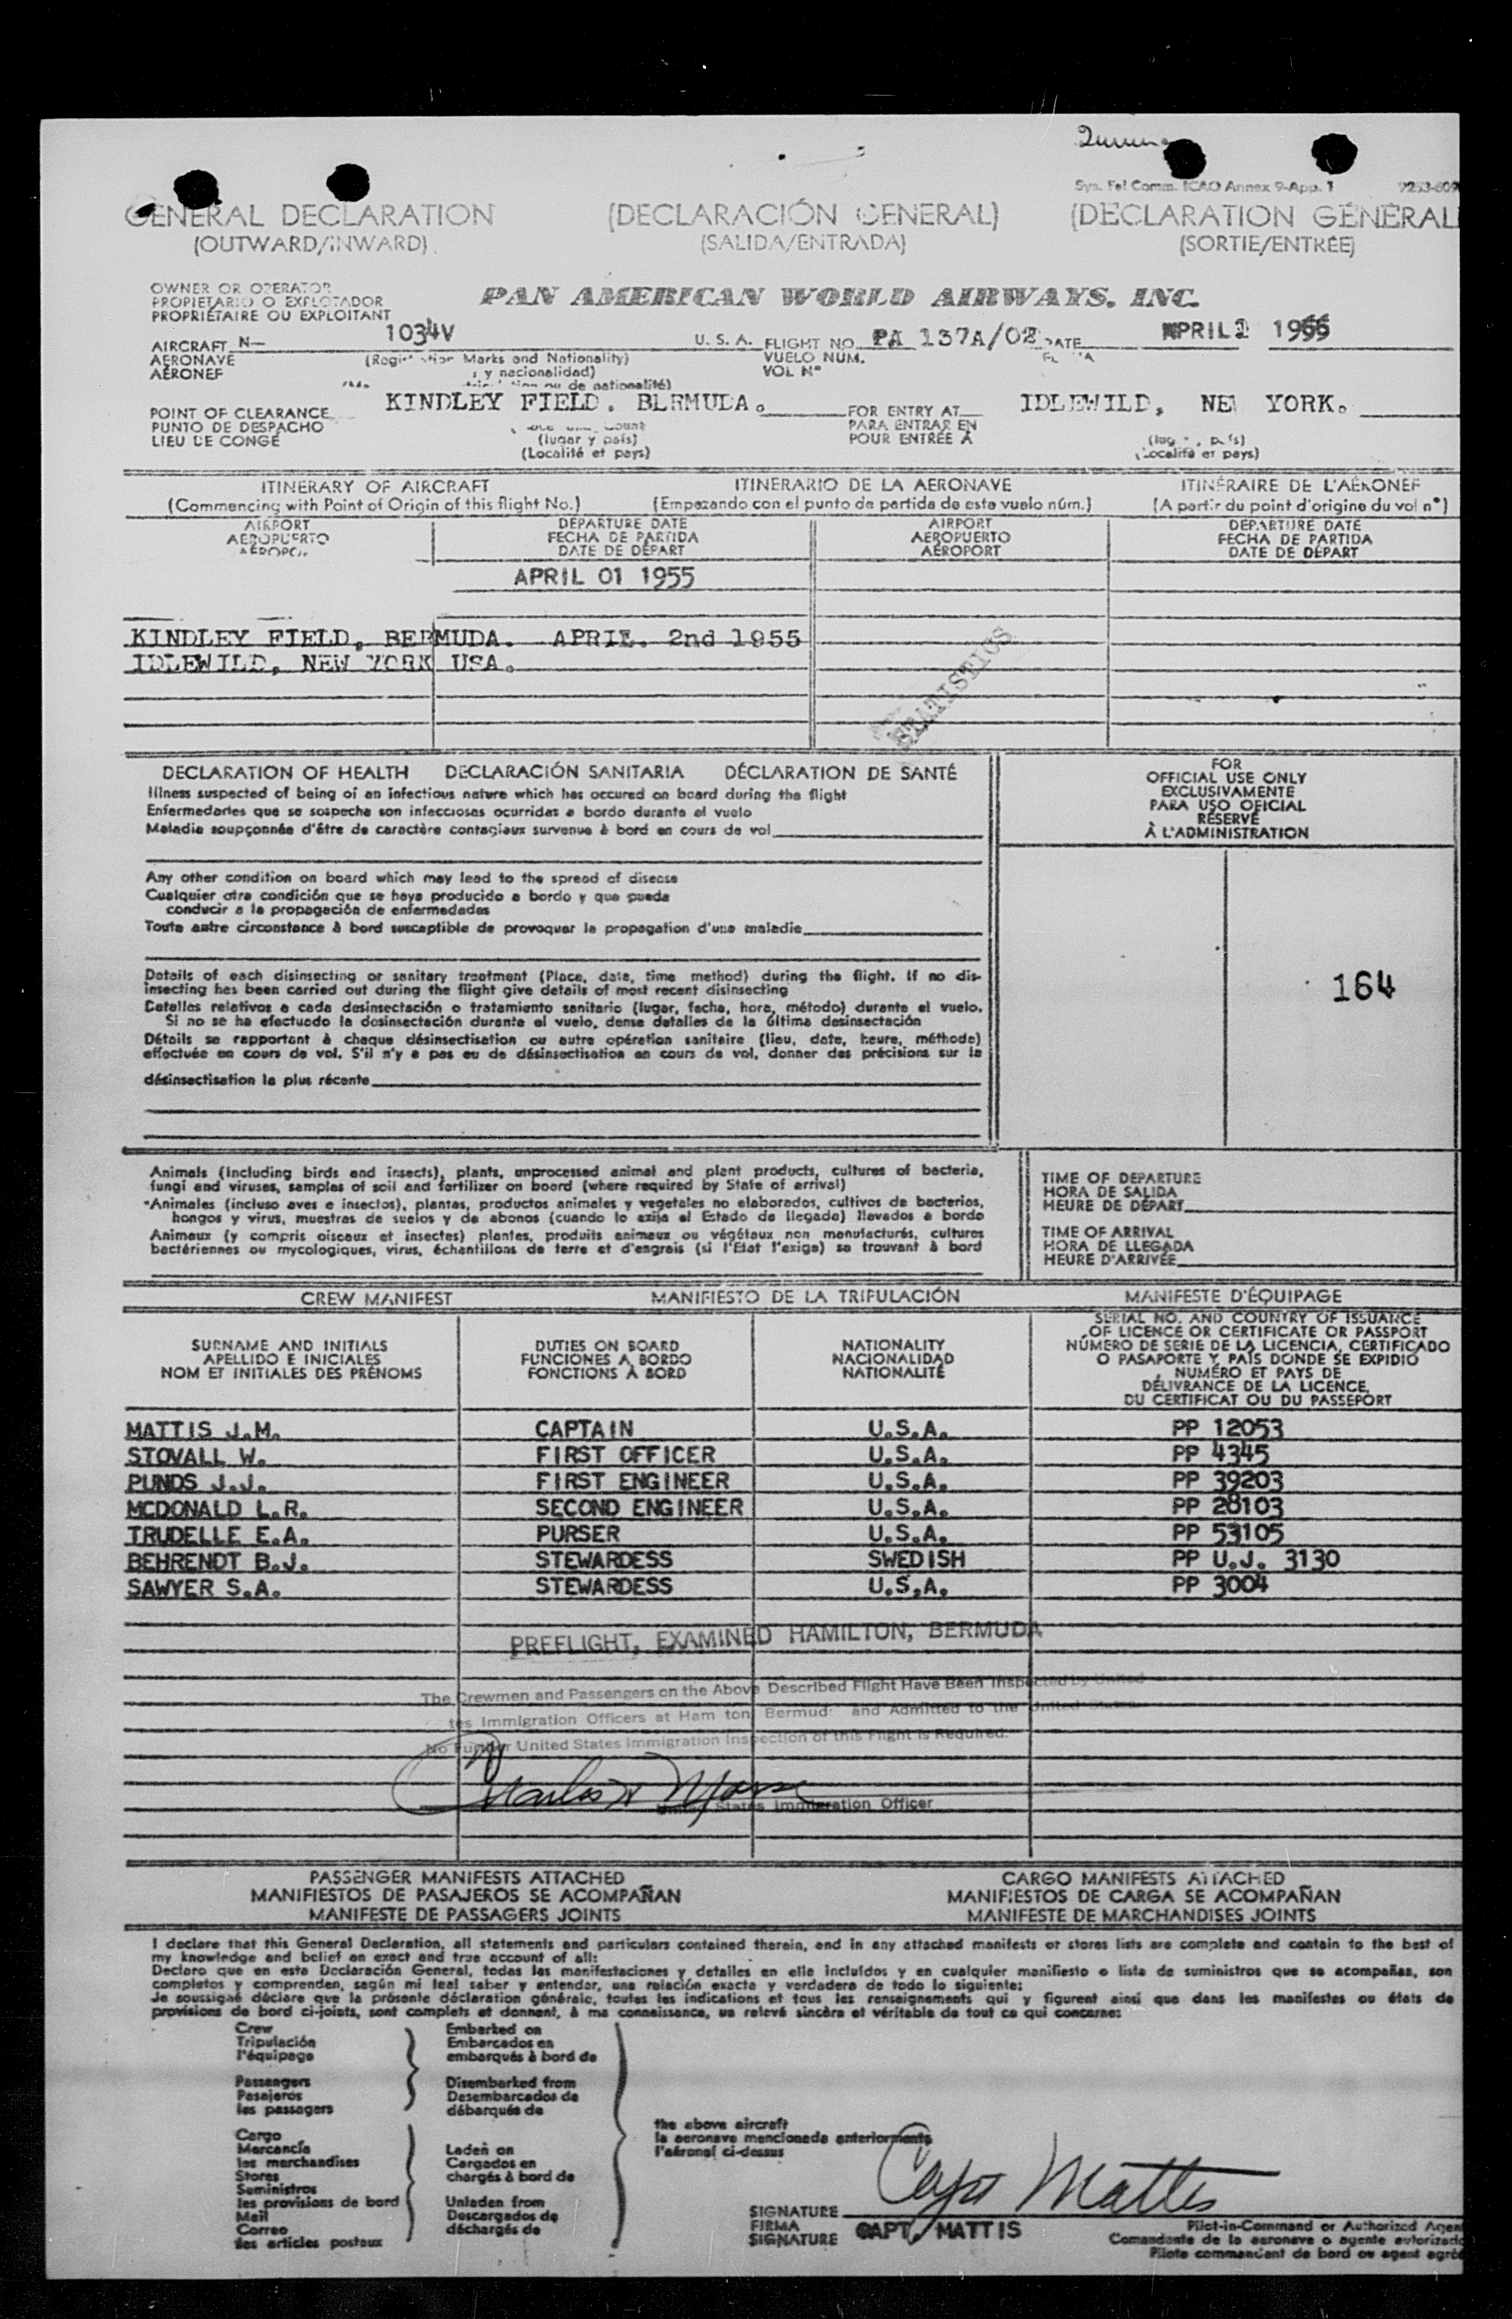 Sys. Fel Comm. ICAO Annex 9-App. 1
GENERAL DECLARATION (DECLARACIÓN GENERAL) (DECLARATION GÉNÉRAL
(OUTWARD/INWARD) (SALIDA/ENTRADA) (SORTIE/ENTRÉE)
OWNER OR OPERATOR
PROPIETARIO O EXPLOTADOR PAN AMERICAN WORLD AIRWAYS, INC.
PROPRIÉTAIRE OU EXPLOITANT
AIRCRAFT N- 1034V U. S. A. FLIGHT NO. PA 137A/02 DATE APRIL 2 1955
AERONAVE (Registration Marks and Nationality) VUELO NUM.
AÉRONEF y nacionalidad) VOL Nº
ou de nationalité)
POINT OF CLEARANCE KINDLEY FIELD. BERMUDA. FOR ENTRY AT IDLEWILD, NEW YORK.
PUNTO DE DESPACHO PARA ENTRAR EN
LIEU DE CONGÉ (lugar y país) POUR ENTRÉE À
(Localité et pays) (Localité et pays)
ITINERARY OF AIRCRAFT ITINERARIO DE LA AERONAVE ITINÉRAIRE DE L'AÉRONEF
(Commencing with Point of Origin of this flight No.) (Empezando con el punto de partida de este vuelo núm.) (A partir du point d'origine du vol n°)
AIRPORT DEPARTURE DATE AIRPORT DEPARTURE DATE
AEROPUERTO FECHA DE PARTIDA AEROPUERTO FECHA DE PARTIDA
AÉROPORT DATE DE DÉPART AÉROPORT DATE DE DÉPART
APRIL 01 1955
KINDLEY FIELD, BERMUDA. APRIL. 2nd 1955
IDLEWILD, NEW YORK USA.
STATISTICS
DECLARATION OF HEALTH DECLARACIÓN SANITARIA DÉCLARATION DE SANTÉ
Illness suspected of being of an infectious nature which has occured on board during the flight
Enfermedades que se sospecha son infecciosas ocurridas a bordo durante el vuelo
Maladie soupçonnée d'être de caractère contagieux survenue à bord en cours de vol
FOR
OFFICIAL USE ONLY
EXCLUSIVAMENTE
PARA USO OFICIAL
RÉSERVÉ
À L'ADMINISTRATION
Any other condition on board which may lead to the spread of disease
Cualquier otra condición que se haya producido a bordo y que pueda
conducir a la propagación de enfermedades
Toute autre circonstance à bord susceptible de provoquer la propagation d'une maladie
Details of each disinsecting or sanitary treatment (Place, date, time method) during the flight. If no dis-
insecting has been carried out during the flight give details of most recent disinsecting
Detalles relativos a cada desinsectación o tratamiento sanitario (lugar, fecha, hora, método) durante el vuelo.
Si no se ha efectuado la desinsectación durante el vuelo, dense detalles de la última desinsectación
Détails se rapportant à chaque désinsectisation ou autre opération sanitaire (lieu, date, heure, méthode)
effectuée en cours de vol. S'il n'y a pas eu de désinsectisation en cours de vol, donner des précisions sur la
désinsectisation la plus récente
164
Animals (including birds and insects), plants, unprocessed animal and plant products, cultures of bacteria,
fungi and viruses, samples of soil and fertilizer on board (where required by State of arrival)
Animales (incluso aves e insectos), plantas, productos animales y vegetales no elaborados, cultivos de bacterias,
hongos y virus, muestras de suelos y de abonos (cuando lo exija el Estado de llegada) llevados a bordo
Animaux (y compris oiseaux et insectes) plantes, produits animaux ou végétaux non manufacturés, cultures
bactériennes ou mycologiques, virus, échantillons de terre et d'engrais (si l'État l'exige) se trouvant à bord
TIME OF DEPARTURE
HORA DE SALIDA
HEURE DE DÉPART
TIME OF ARRIVAL
HORA DE LLEGADA
HEURE D'ARRIVÉE
CREW MANIFEST MANIFIESTO DE LA TRIPULACIÓN MANIFESTE D'ÉQUIPAGE
SURNAME AND INITIALS
APELLIDO E INICIALES
NOM ET INITIALES DES PRÉNOMS
DUTIES ON BOARD
FUNCIONES A BORDO
FONCTIONS À BORD
NATIONALITY
NACIONALIDAD
NATIONALITÉ
SERIAL NO. AND COUNTRY OF ISSUANCE
OF LICENCE OR CERTIFICATE OR PASSPORT
NÚMERO DE SERIE DE LA LICENCIA, CERTIFICADO
O PASAPORTE Y PAÍS DONDE SE EXPIDIÓ
NUMÉRO ET PAYS DE
DÉLIVRANCE DE LA LICENCE,
DU CERTIFICAT OU DU PASSEPORT
MATTIS J.M. CAPTAIN U.S.A. PP 12053
STOVALL W. FIRST OFFICER U.S.A. PP 4345
PUNDS J.J. FIRST ENGINEER U.S.A. PP 39203
MCDONALD L.R. SECOND ENGINEER U.S.A. PP 28103
TRUDELLE E.A. PURSER U.S.A. PP 53105
BEHRENDT B.J. STEWARDESS SWEDISH PP U.J. 3130
SAWYER S.A. STEWARDESS U.S.A. PP 3004
PREFLIGHT, EXAMINED HAMILTON, BERMUDA
The Crewmen and Passengers on the Above Described Flight Have Been Inspected by United
tes Immigration Officers at Ham ton Bermud and Admitted to the United States
No Further United States Immigration Inspection of this Flight is Required.
United States Immigration Officer
PASSENGER MANIFESTS ATTACHED CARGO MANIFESTS ATTACHED
MANIFIESTOS DE PASAJEROS SE ACOMPAÑAN MANIFIESTOS DE CARGA SE ACOMPAÑAN
MANIFESTE DE PASSAGERS JOINTS MANIFESTE DE MARCHANDISES JOINTS
I declare that this General Declaration, all statements and particulars contained therein, and in any attached manifests or stores lists are complete and contain to the best of
my knowledge and belief an exact and true account of all:
Declaro que en esta Declaración General, todas las manifestaciones y detalles en ella incluidos y en cualquier manifiesto o lista de suministros que se acompañas, son
completos y comprenden, según mi leal saber y entender, una relación exacta y verdadera de todo lo siguiente:
Je soussigné déclare que la présente déclaration générale, toutes les indications et tous les renseignements qui y figurent ainsi que dans les manifestes ou états de
provisions de bord ci-joints, sont complets et donnent, à ma connaissance, un relevé sincère et véritable de tout ce qui concerne:
Crew
Tripulación
l'équipage
Passengers
Pasajeros
les passagers
Cargo
Mercancía
les marchandises
Stores
Suministros
les provisions de bord
Mail
Correo
les articles postaux
Embarked on
Embarcados en
embarqués à bord de
Disembarked from
Desembarcados de
débarqués de
Laden on
Cargados en
chargés à bord de
Unladen from
Descargados de
déchargés de
the above aircraft
la aeronave mencionada anteriormente
l'aéronef ci-dessus
Capt Mattis
SIGNATURE
FIRMA CAPT. MATTIS
SIGNATURE
Pilot-in-Command or Authorized Agen
Comandante de la aeronave o agente autorizado
Pilote commandant de bord ou agent agréé